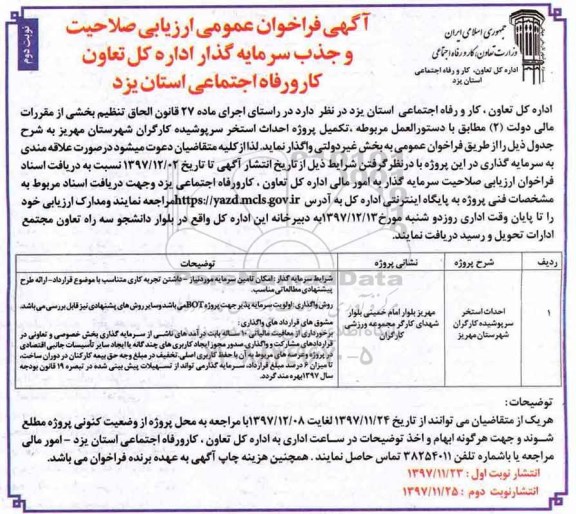 نوبت دوم
آگهی فراخوان عمومی ارزیابی صلاحیت
و جذب سرمایه گذار اداره کل تعاون
کارورفاه اجتماعی استان یزد
جمهوری اسلامی ایران
وزارت تعاون، کار و رفاه اجتماعی
اداره کل تعاون، کار و رفاه اجتماعی
استان یزد
اداره کل تعاون ، کار و رفاه اجتماعی استان یزد در نظر دارد در راستای اجرای ماده ۲۷ قانون الحاق تنظیم بخشی از مقررات
مالی دولت (۲) مطابق با دستورالعمل مربوطه ،تکمیل پروژه احداث استخر سرپوشیده کارگران شهرستان مهریز به شرح
جدول ذیل را از طریق فراخوان عمومی به بخش غیردولتی واگذار نماید. لذا از کلیه متقاضیان دعوت میشود در صورت علاقه مندی
به سرمایه گذاری در این پروژه با در نظر گرفتن شرایط ذیل از تاریخ انتشار آگهی تا تاریخ ۱۳۹۷/۱۲/۰۲ نسبت به دریافت اسناد
فراخوان ارزیابی صلاحیت سرمایه گذار به امور مالی اداره کل تعاون ، کارورفاه اجتماعی یزد وجهت دریافت اسناد مربوط به
مشخصات فنی پروژه به پایگاه اینترنتی اداره کل به آدرس https://yazd.mcls.gov.ir مراجعه نمایند ومدارک ارزیابی خود
را تا پایان وقت اداری روزدو شنبه مورخ ۱۳۹۷/۱۲/۱۳ به دبیرخانه این اداره کل واقع در بلوار دانشجو سه راه تعاون مجتمع
ادارات تحویل و رسید دریافت نمایند.
ردیف شرح پروژه نشانی پروژه توضیحات
۱
احداث استخر
سرپوشیده کارگران
شهرستان مهریز
مهریز بلوار امام خمینی بلوار
شهدای کارگر مجموعه ورزشی
کارگران
شرایط سرمایه گذار : امکان تامین سرمایه موردنیاز - داشتن تجربه کاری متناسب با موضوع قرارداد- ارائه طرح
پیشنهادی مطالعاتی مناسب.
روش واگذاری : اولویت سرمایه پذیر جهت پروژه BOT می باشد وسایر روش های پیشنهادی نیز قابل بررسی می باشد.
مشوق های قرارداد های واگذاری :
برخورداری از معافیت مالیاتی ۱۰ ساله بابت درآمد های ناشی از سرمایه گذاری بخش خصوصی و تعاونی در
قراردادهای مشارکت و واگذاری، صدور مجوز ایجاد کاربری های چند گانه یا ایجاد سایر تأسیسات جانبی اقتصادی
در پروژه وعرصه های مربوط به آن با حفظ کاربری اصلی، تخفیف در مبلغ وجه حق بیمه کارکنان در دوران ساخت،
تا میزان ۶ درصد مبلغ قرارداد، سرمایه گذار می تواند از تسهیلات پیش بینی شده در تبصره ۱۹ قانون بودجه
سال ۱۳۹۷ بهره مند گردد.
توضیحات:
هر یک از متقاضیان می توانند از تاریخ ۱۳۹۷/۱۱/۲۴ لغایت ۱۳۹۷/۱۲/۰۸ با مراجعه به محل پروژه از وضعیت کنونی پروژه مطلع
شوند و جهت هرگونه ابهام و اخذ توضیحات در ساعت اداری به اداره کل تعاون ، کارورفاه اجتماعی استان یزد – امور مالی
مراجعه یا باشماره تلفن ۳۸۲۵۴۰۱۱ تماس حاصل نمایند . همچنین هزینه چاپ آگهی به عهده برنده فراخوان می باشد.
انتشار نوبت اول : ۱۳۹۷/۱۱/۲۳
انتشارنوبت دوم : ۱۳۹۷/۱۱/۲۵